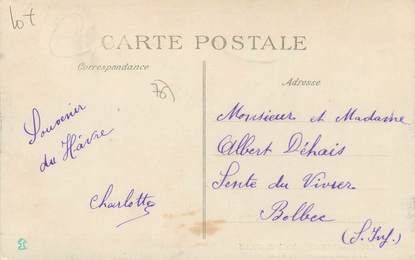 lot
CARTE POSTALE
Correspondance
Adresse
76)
Souvenir
du Hâvre
Charlotte
Monsieur et Madame
Albert Déhais
Sente du Vivier
Bolbec
(S. Inf.)